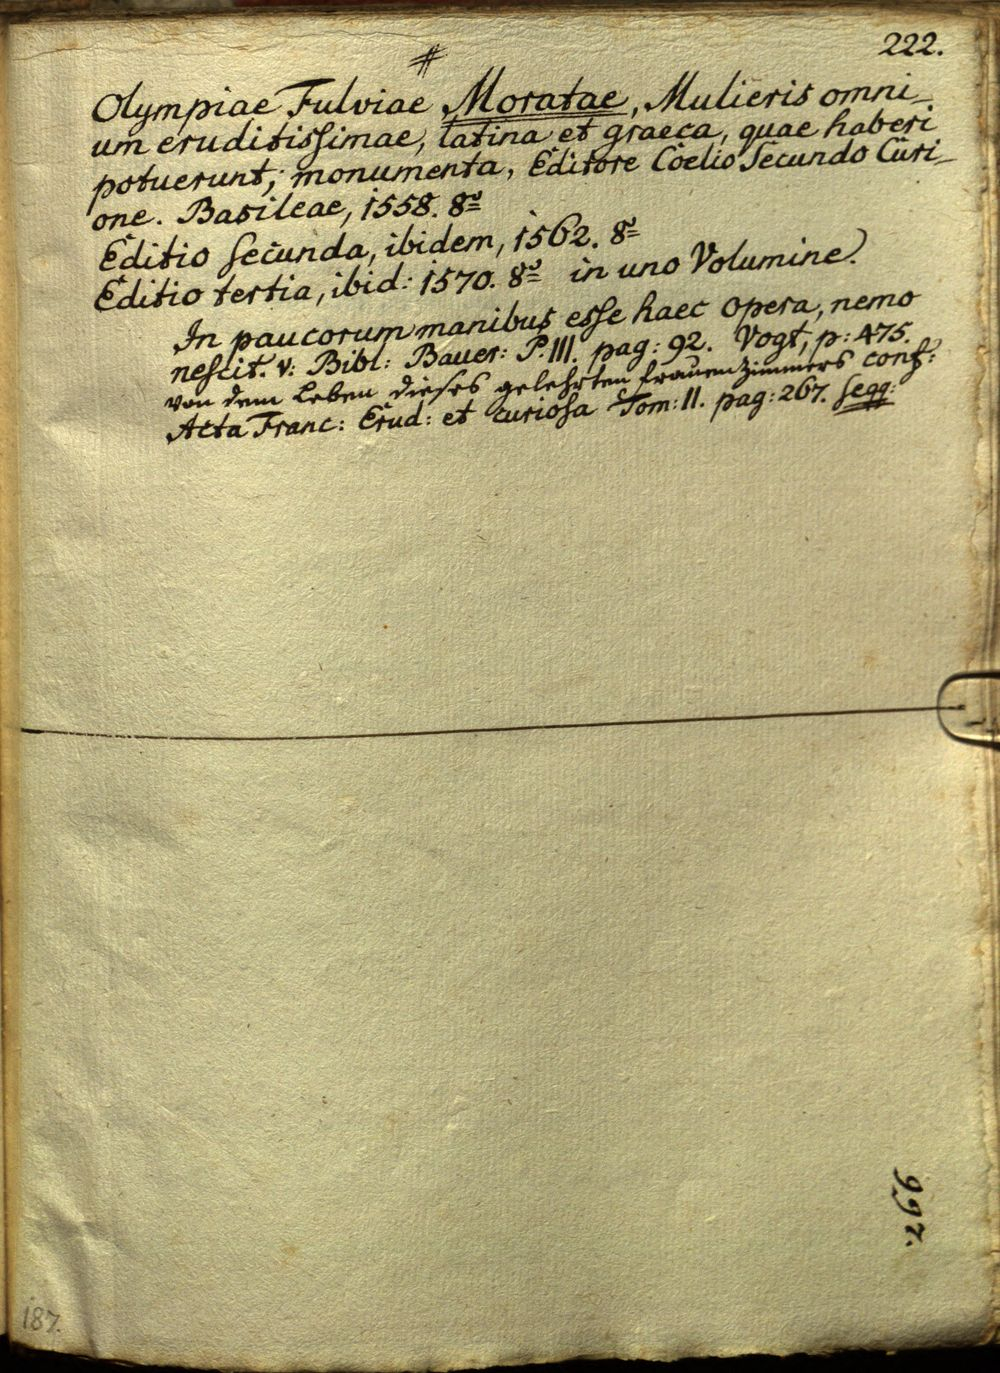 222.
#
Olympiae Fulviae Moratae, Mulieris omni-
um eruditissimae, latina et graeca, quae haberi
potuerunt, monumenta, Editore Coelio Secundo Curi-
one. Basileae, 1558. 8º
Editio secunda, ibidem, 1562. 8º
Editio tertia, ibid: 1570. 8º in uno Volumine.
In paucorum manibus esse haec opera, nemo
nescit. v: Bibl: Bauer: P. III. pag: 92. Vogt, p: 475.
von dem Leben dieses gelehrten Frauenzimmers conf:
Acta Franc: Erud: et curiosa Tom: II. pag: 267. seqq:
997.
187.